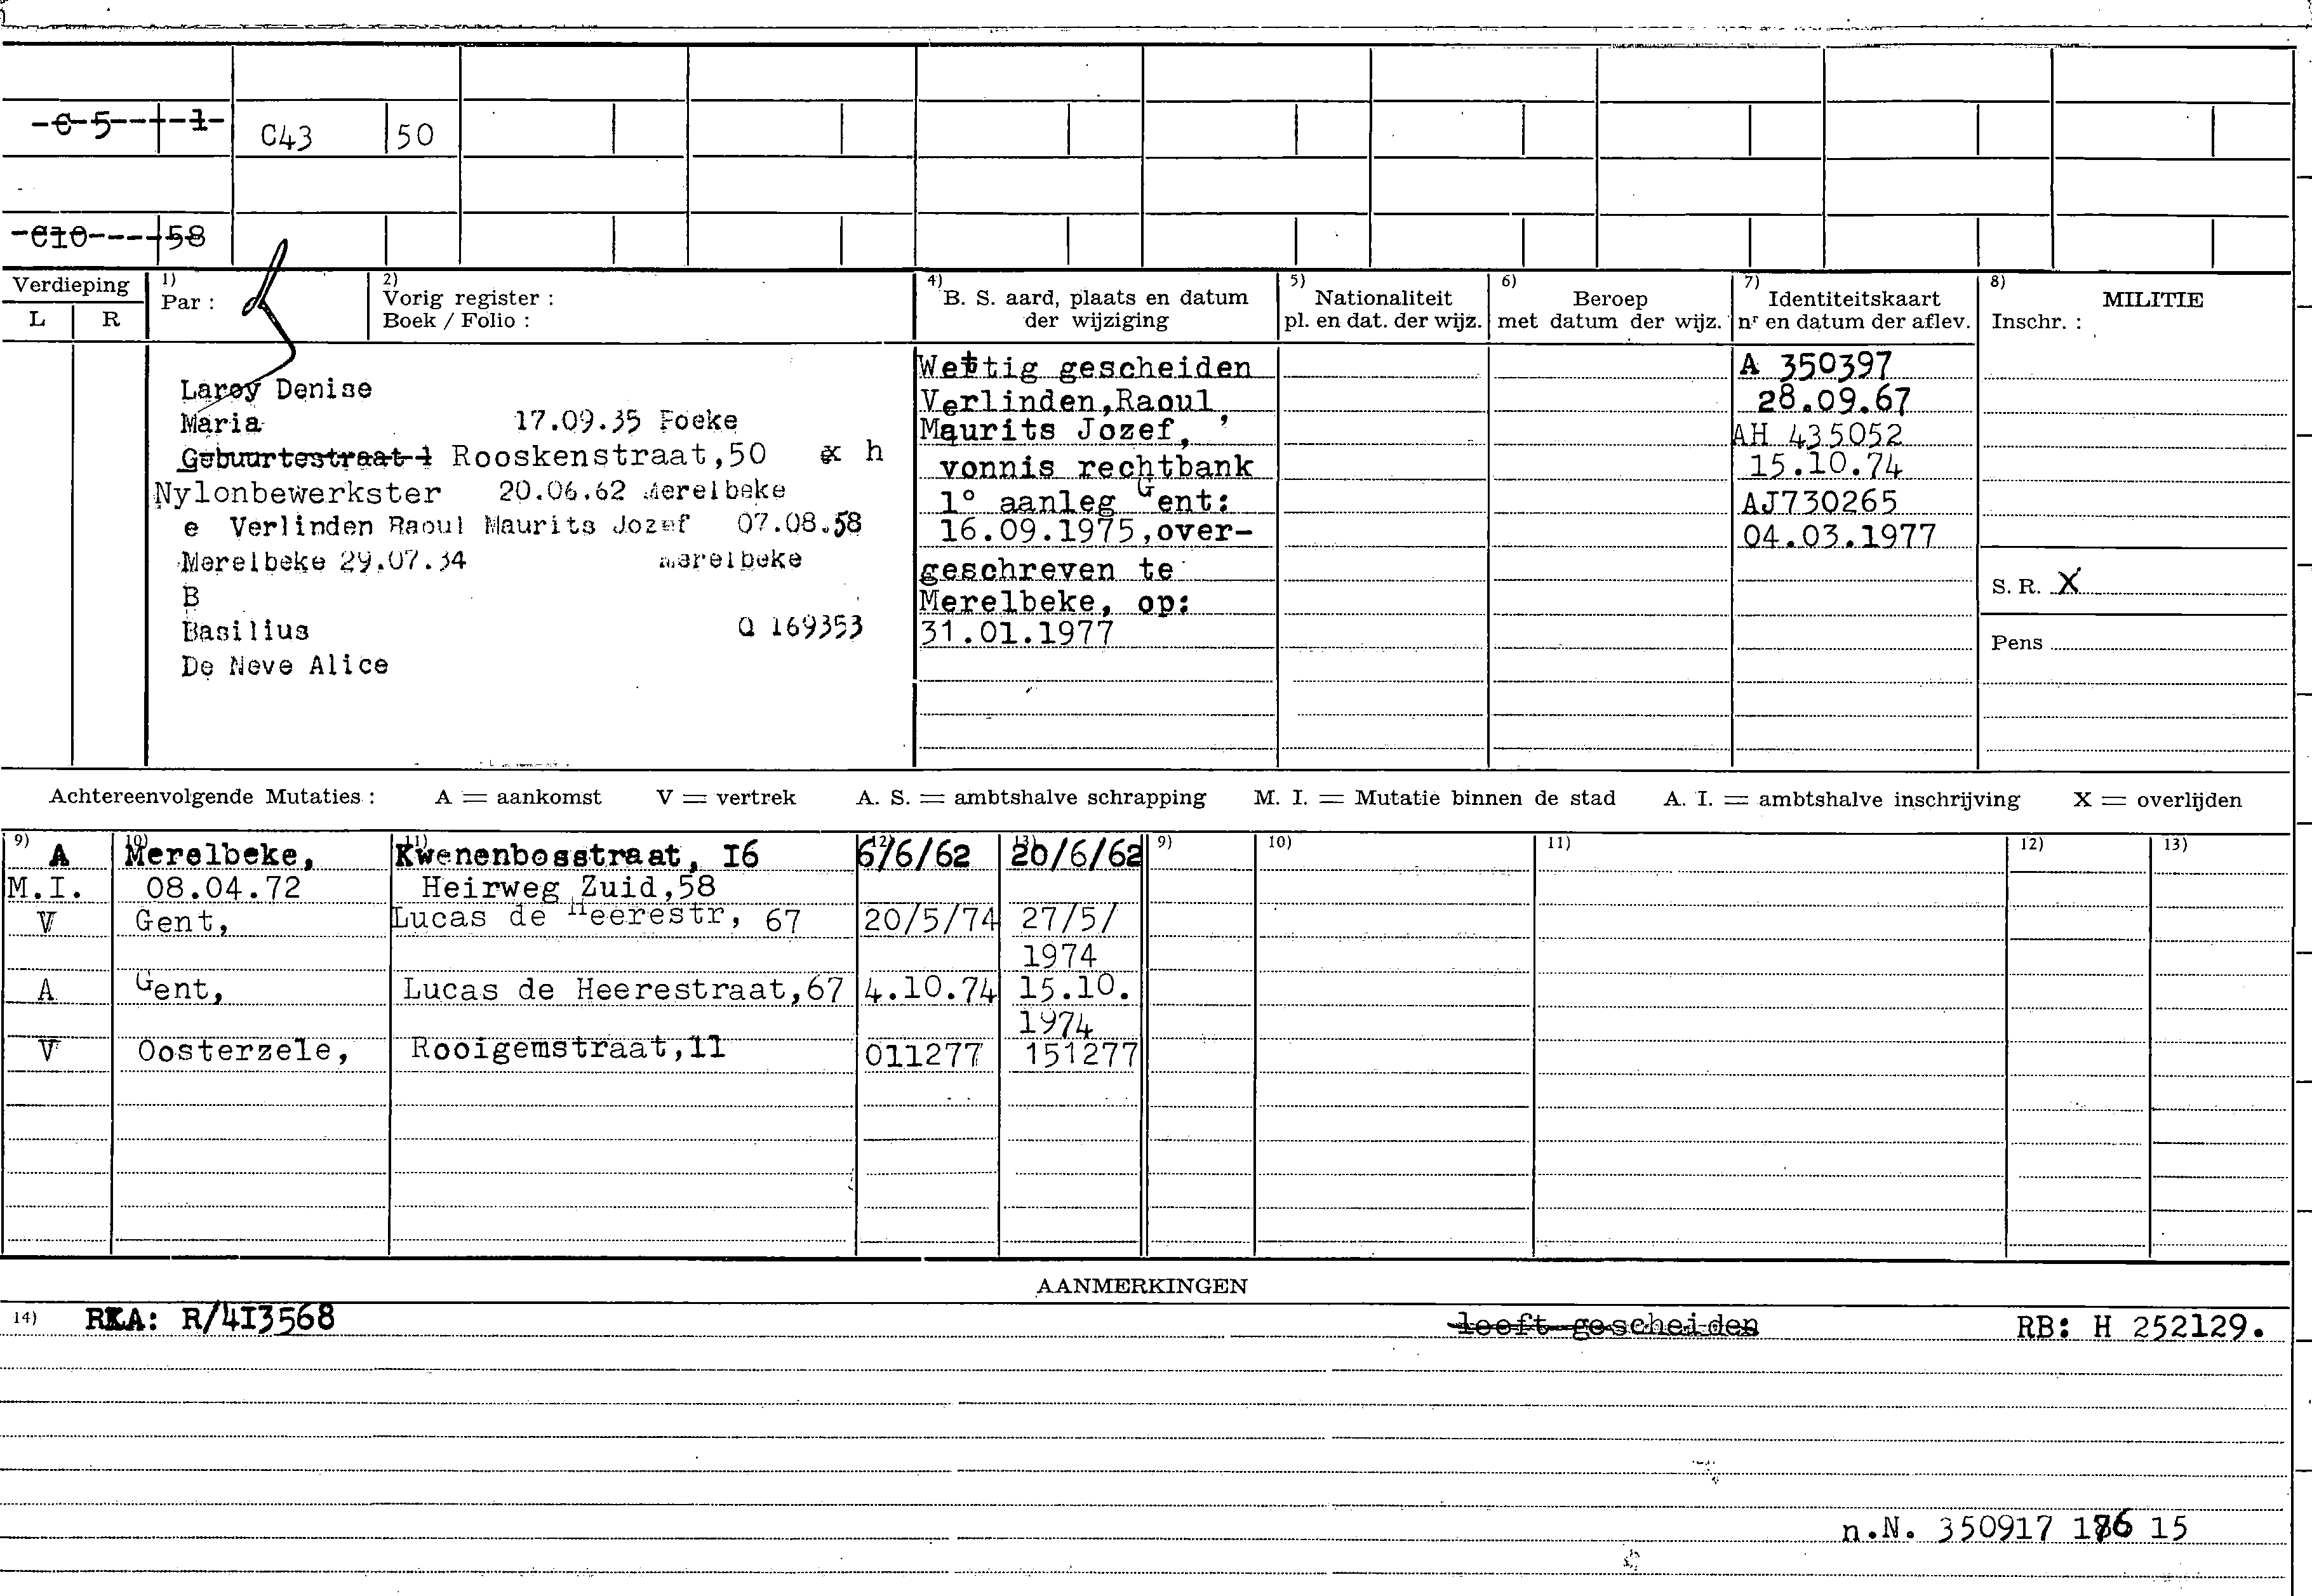 C 5 1 C43 50
C10 58
Verdieping
L R
1) Par :
2) Vorig register :
Boek / Folio :
4) B. S. aard, plaats en datum
der wijziging
5) Nationaliteit
pl. en dat. der wijz.
6) Beroep
met datum der wijz.
7) Identiteitskaart
nr en datum der aflev.
8) MILITIE
Inschr. :
Laroy Denise
Maria 17.09.35 Poeke
Gebuurtestraat 1 Rooskenstraat,50 x h
Nylonbewerkster 20.06.62 Merelbeke
e Verlinden Raoul Maurits Jozef 07.08.58
Merelbeke 29.07.34 Merelbeke
B
Basilius Q 169353
De Neve Alice
Wettig gescheiden
Verlinden,Raoul,
Maurits Jozef,
vonnis rechtbank
1° aanleg Gent:
16.09.1975,over-
geschreven te
Merelbeke, op:
31.01.1977
A 350397
28.09.67
AH 435052
15.10.74
AJ730265
04.03.1977
S. R. X
Pens
Achtereenvolgende Mutaties : A = aankomst V = vertrek A. S. = ambtshalve schrapping M. I. = Mutatie binnen de stad A. I. = ambtshalve inschrijving X = overlijden
9) 10) 11) 12) 13) 9) 10) 11) 12) 13)
A Merelbeke, Kwenenbosstraat, I6 6/6/62 20/6/62
M.I. 08.04.72 Heirweg Zuid,58
V Gent, Lucas de Heerestr, 67 20/5/74 27/5/
1974
A Gent, Lucas de Heerestraat,67 4.10.74 15.10.
1974
V Oosterzele, Rooigemstraat,11 011277 151277
AANMERKINGEN
14) RKA: R/4I3568 leeft gescheiden RB: H 252129.
n.N. 350917 15